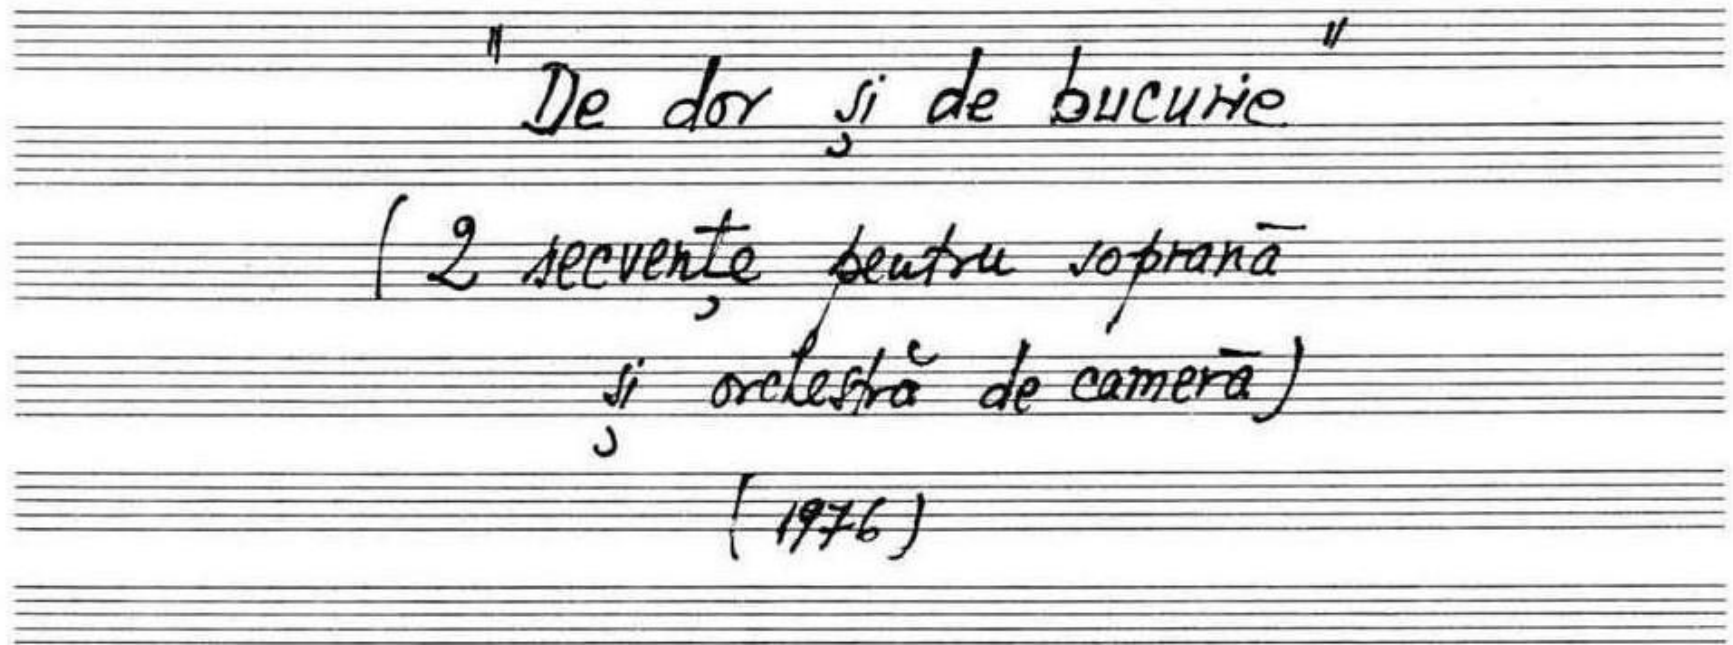 "De dor și de bucurie"
(2 secvențe pentru soprană
și orchestră de cameră)
(1976)